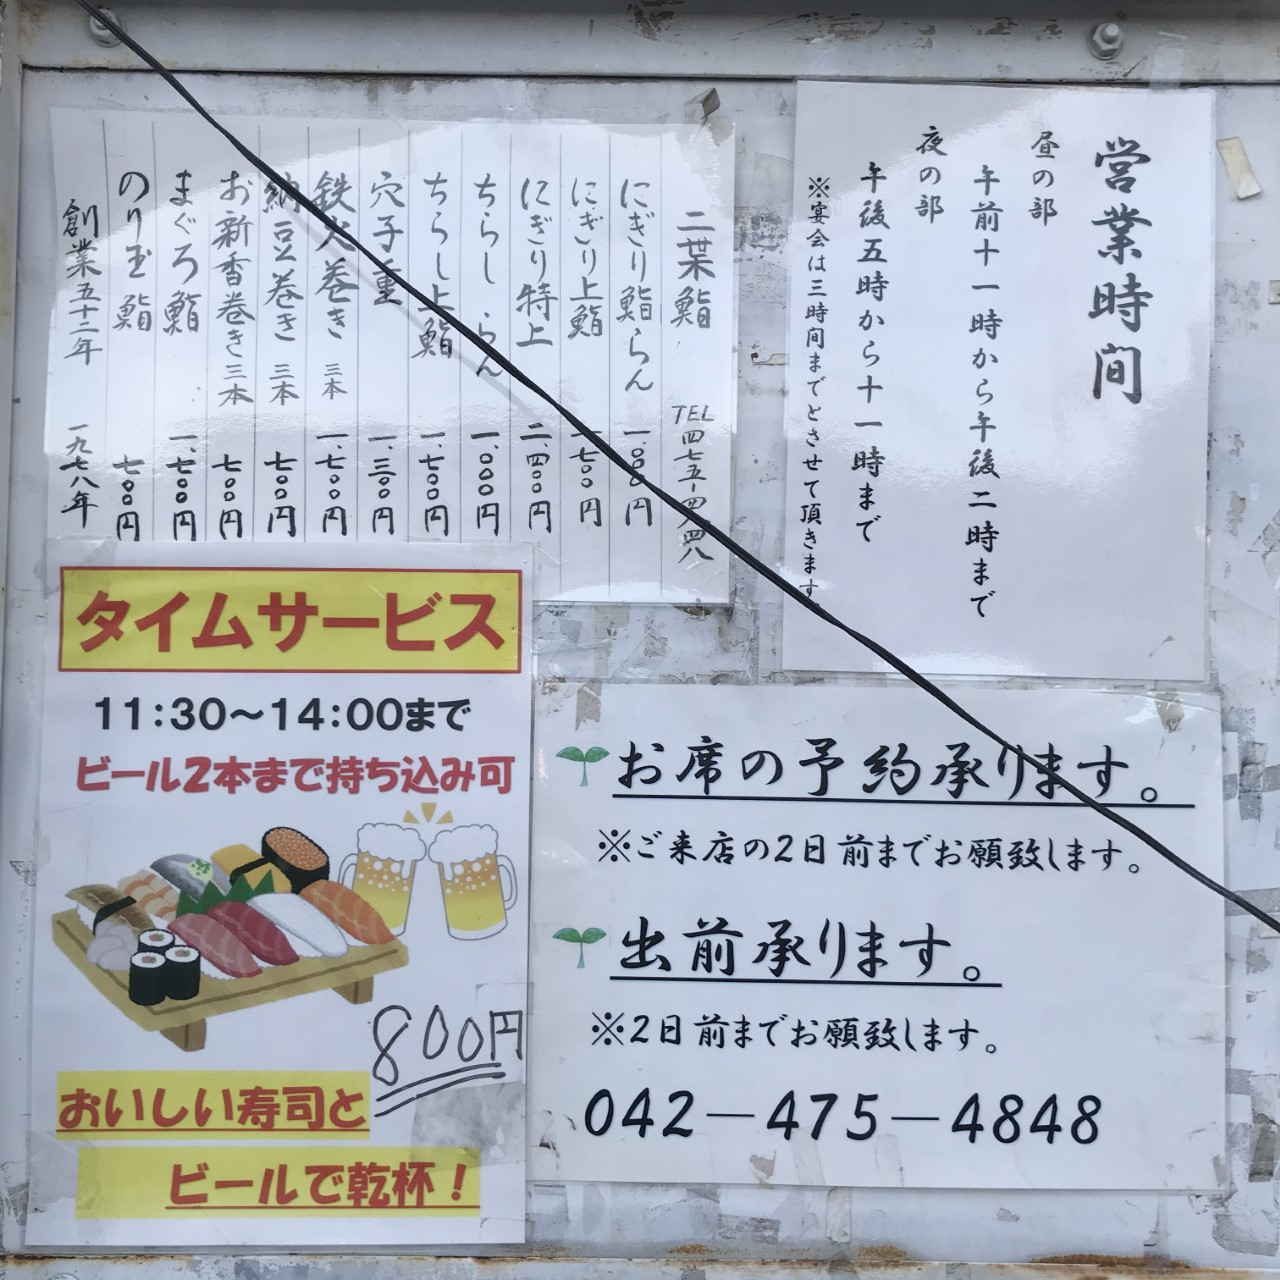 営業時間
昼の部
午前十一時から午後二時まで
夜の部
午後五時から十一時まで
※宴会は三時間までとさせて頂きます。
二葉鮨 TEL 四七五-四八四八
にぎり鮨らん 一、〇〇〇円
にぎり上鮨 一、七〇〇円
にぎり特上 二、四〇〇円
ちらしらん 一、〇〇〇円
ちらし上鮨 一、七〇〇円
穴子重 一、三〇〇円
鉄火巻き 三本 一、七〇〇円
納豆巻き 三本 七〇〇円
お新香巻き 三本 七〇〇円
まぐろ鮨 一、七〇〇円
のり玉鮨 七〇〇円
創業五十二年 一九七八年
タイムサービス
11:30〜14:00まで
ビール2本まで持ち込み可
800円
おいしい寿司と
ビールで乾杯！
お席の予約承ります。
※ご来店の2日前までお願致します。
出前承ります。
※2日前までお願致します。
042－475－4848